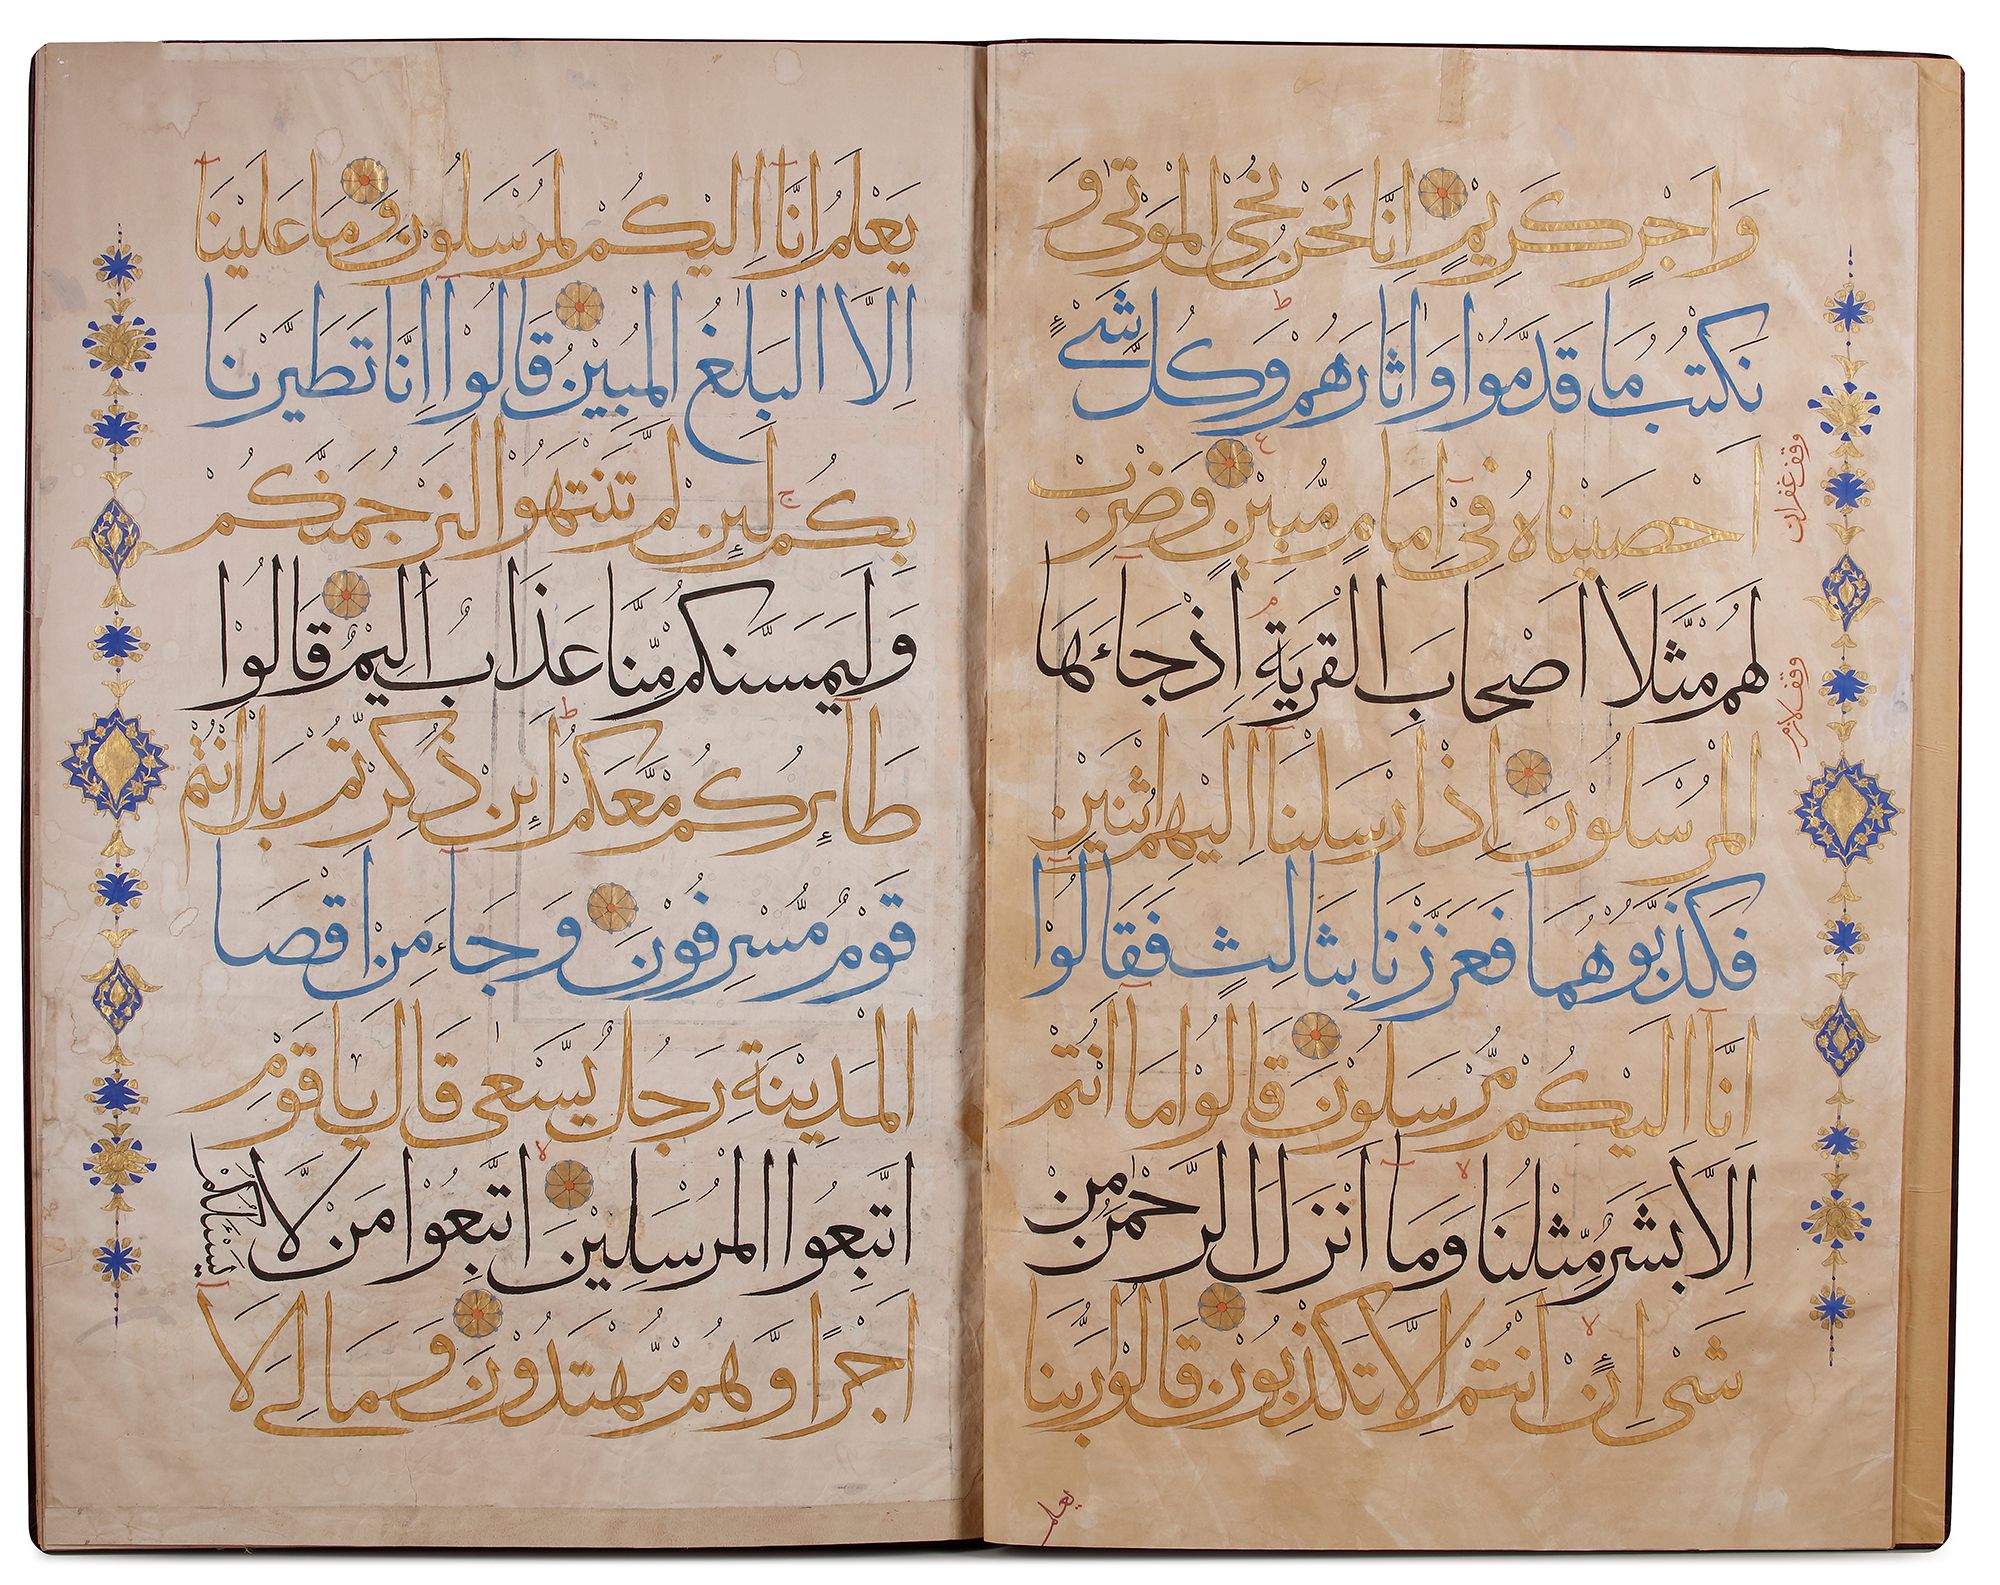 وَاَجْرٍ كَرِيْمٍ اِنَّا نَحْنُ نُحْيِ الْمَوْتٰى وَ
نَكْتُبُ مَا قَدَّمُوْا وَاٰثَارَهُمْ ط وَكُلَّ شَيْءٍ
اَحْصَيْنَاهُ فِيْ اِمَامٍ مُّبِيْنٍ ع وَضْرِبْ
وقف غفران
لَهُمْ مَّثَلًا اَصْحَابَ الْقَرْيَةِ م اِذْ جَاءَهَا
وقف لازم
الْمُرْسَلُوْنَ اِذْ اَرْسَلْنَا اِلَيْهِمُ اثْنَيْنِ
فَكَذَّبُوْهُمَا فَعَزَّزْنَا بِثَالِثٍ فَقَالُوْا
اِنَّا اِلَيْكُمْ مُّرْسَلُوْنَ قَالُوْا مَا اَنْتُمْ
اِلَّا بَشَرٌ مِّثْلُنَا لا وَمَا اَنْزَلَ الرَّحْمٰنُ مِنْ
شَىْءٍ اِنْ اَنْتُمْ اِلَّا تَكْذِبُوْنَ قَالُوْا رَبُّنَا
يعلم
يَعْلَمُ اِنَّا اِلَيْكُمْ لَمُرْسَلُوْنَ وَمَا عَلَيْنَا
اِلَّا الْبَلٰغُ الْمُبِيْنُ قَالُوْا اِنَّا تَطَيَّرْنَا
بِكُمْ ج لَئِنْ لَمْ تَنْتَهُوْا لَنَرْجُمَنَّكُمْ
وَلَيَمَسَّنَّكُمْ مِّنَّا عَذَابٌ اَلِيْمٌ قَالُوْا
طَائِرُكُمْ مَّعَكُمْ ط اَئِنْ ذُكِّرْتُمْ بَلْ اَنْتُمْ
قَوْمٌ مُّسْرِفُوْنَ وَجَاءَ مِنْ اَقْصَا
الْمَدِيْنَةِ رَجُلٌ يَّسْعٰى قَالَ يَا قَوْمِ
اتَّبِعُوا الْمُرْسَلِيْنَ لا اتَّبِعُوْا مَنْ لَّا يَسْئَلُكُمْ
اَجْرًا وَّهُمْ مُّهْتَدُوْنَ وَمَا لِيَ لَا